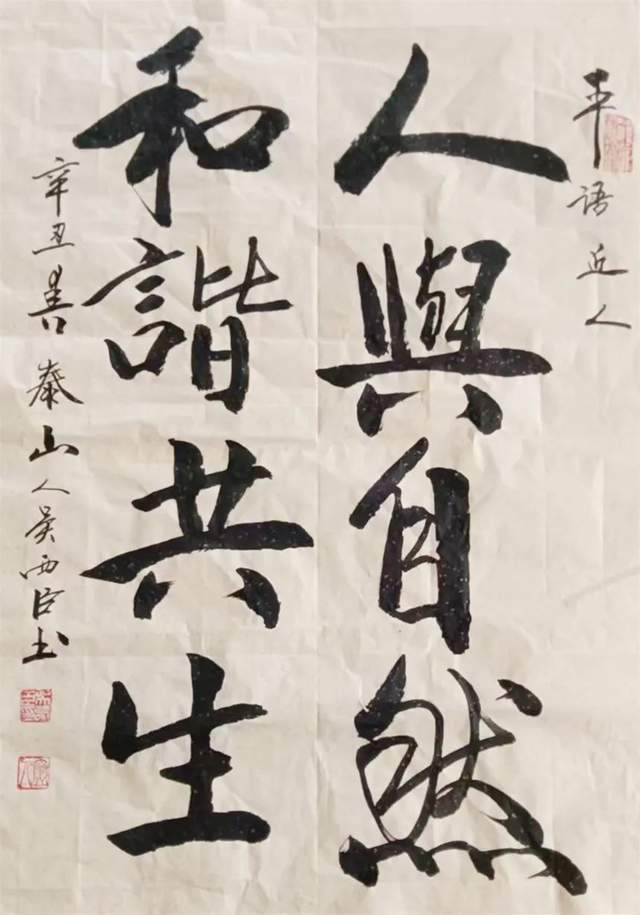 平語近人
人與自然
和諧共生
辛丑春泰山人吴西臣书